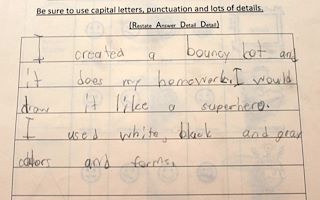 Be sure to use capital letters, punctuation and lots of details.
(Restate Answer Detail Detail)
I created a bouncy bot and
it does my homework. I would
draw it like a superhero.
I used white, black and gray
colors and forms.